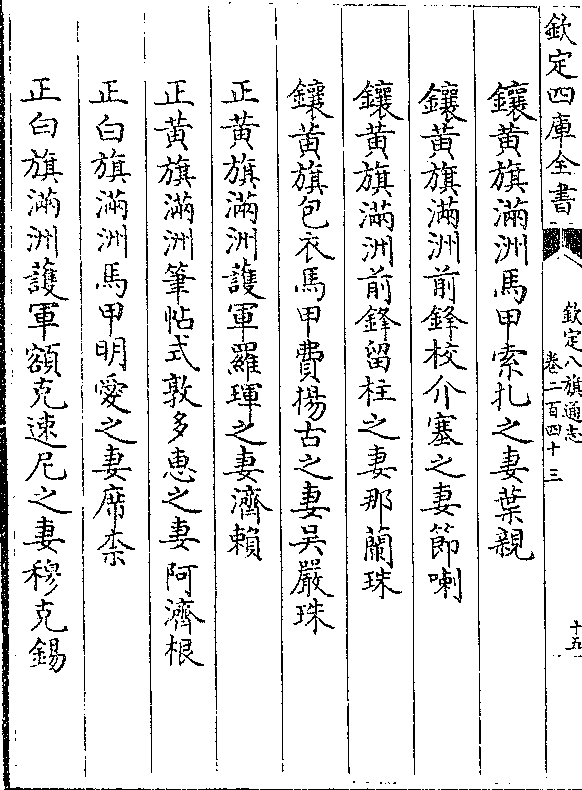 欽定四庫全書
欽定八旗通志
卷二百四十三
十五
鑲黃旗滿洲馬甲索扎之妻葉親
鑲黃旗滿洲前鋒校介塞之妻節喇
鑲黃旗滿洲前鋒留柱之妻那蘭珠
鑲黃旗包衣馬甲費揚古之妻吳嚴珠
正黃旗滿洲護軍羅琿之妻濟賴
正黃旗滿洲筆帖式敦多惠之妻阿濟根
正白旗滿洲馬甲明愛之妻席柰
正白旗滿洲護軍額克速尼之妻穆克錫